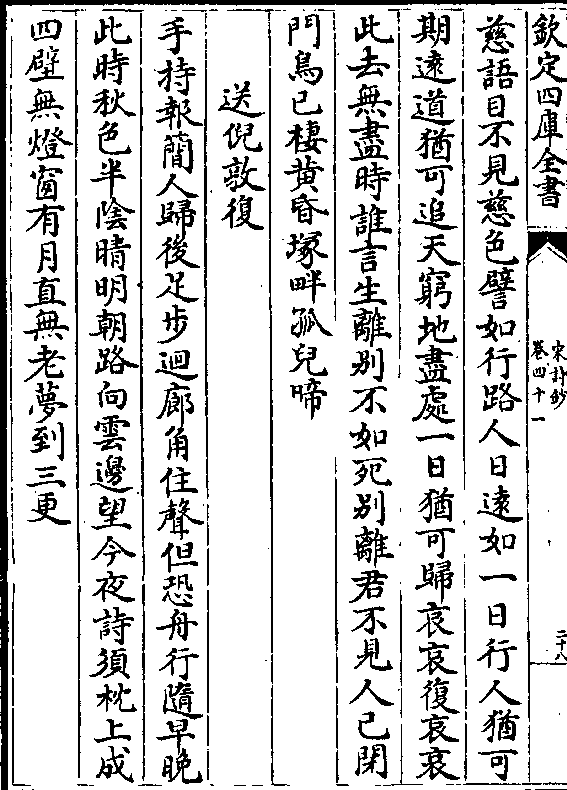 欽定四庫全書
宋詩鈔
卷四十一
二十八
慈語目不見慈色譬如行路人日逺如一日行人猶可
期逺道猶可追天窮地盡處一日猶可歸哀哀復哀哀
此去無盡時誰言生離别不如死别離君不見人已閉
門鳥已棲黄昏塚畔孤兒啼
送倪敦復
手持報簡人歸後足步迴廊角住聲但恐舟行隨早晚
此時秋色半陰晴明朝路向雲邊望今夜詩須枕上成
四壁無燈窗有月直無老夢到三更